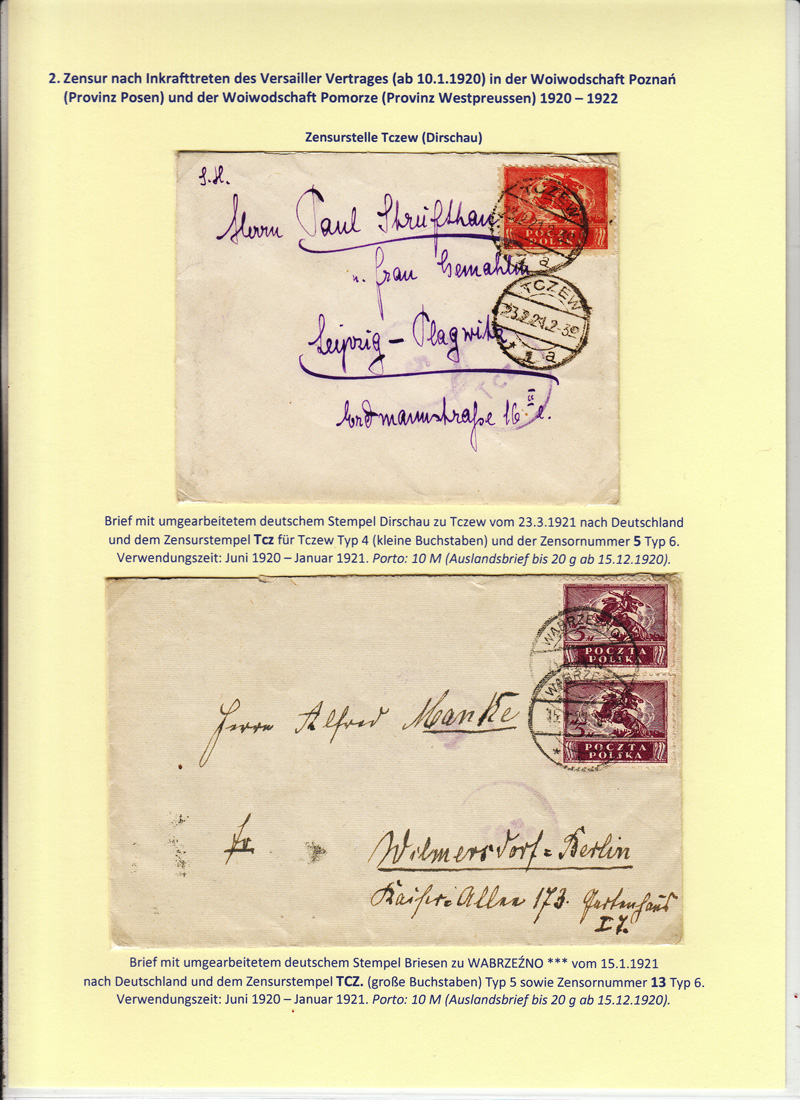 2. Zensur nach Inkrafttreten des Versailler Vertrages (ab 10.1.1920) in der Woiwodschaft Poznań
(Provinz Posen) und der Woiwodschaft Pomorze (Provinz Westpreussen) 1920 – 1922
Zensurstelle Tczew (Dirschau)
S.H.
Herrn Paul
TCZEW
POCZTA
POLSKA
a
u. Frau Gemahlin
TCZEW
23.2.21.2-3
1 a
Leipzig – Plagwitz
Tcz
Erdmannstraße 16
Brief mit umgearbeitetem deutschem Stempel Dirschau zu Tczew vom 23.3.1921 nach Deutschland
und dem Zensurstempel Tcz für Tczew Typ 4 (kleine Buchstaben) und der Zensornummer 5 Typ 6.
Verwendungszeit: Juni 1920 – Januar 1921. Porto: 10 M (Auslandsbrief bis 20 g ab 15.12.1920).
WABRZEŹNO
POCZTA
POLSKA
WABRZEŹ
POCZTA
POLSKA
Herrn Alfred Manke
Wilmersdorf=Berlin
Kaiser-Allee 173. Gartenhaus
I
Brief mit umgearbeitetem deutschem Stempel Briesen zu WABRZEŹNO *** vom 15.1.1921
nach Deutschland und dem Zensurstempel TCZ. (große Buchstaben) Typ 5 sowie Zensornummer 13 Typ 6.
Verwendungszeit: Juni 1920 – Januar 1921. Porto: 10 M (Auslandsbrief bis 20 g ab 15.12.1920).